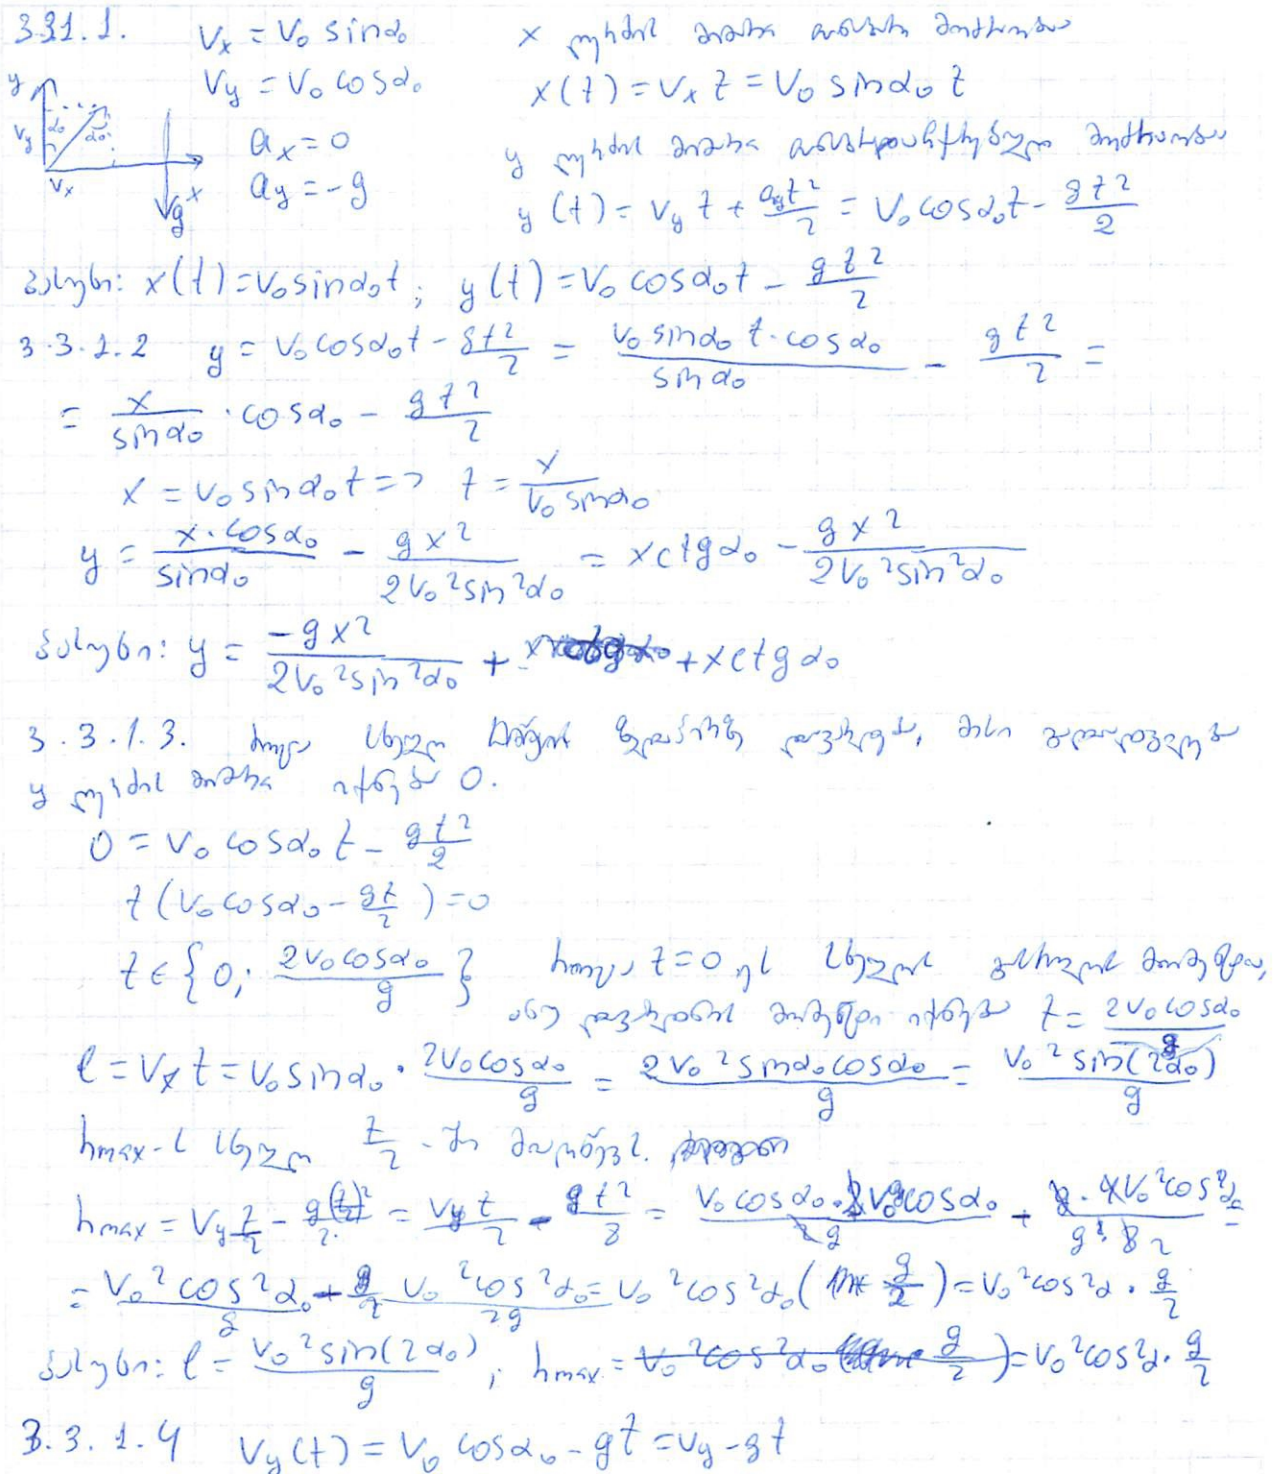 3.3.1.1. Vx = V₀ sinα₀ x ღერძის მიმართ თანაბარი მოძრაობაა
Vy = V₀ cosα₀ x(t) = Vx t = V₀ sinα₀ t
y Vy α₀ α₀ Vx x g
ax = 0 y ღერძის მიმართ თანაბრადაჩქარებული მოძრაობაა
ay = -g y(t) = Vy t + ay t²/2 = V₀ cosα₀ t - gt²/2
პასუხი: x(t) = V₀ sinα₀ t; y(t) = V₀ cosα₀ t - gt²/2
3.3.1.2 y = V₀ cosα₀ t - gt²/2 = V₀ sinα₀ t · cosα₀/sinα₀ - gt²/2 =
= x/sinα₀ · cosα₀ - gt²/2
x = V₀ sinα₀ t => t = x/V₀ sinα₀
y = x · cosα₀/sinα₀ - gx²/2V₀² sin²α₀ = x ctgα₀ - gx²/2V₀² sin²α₀
პასუხი: y = -gx²/2V₀² sin²α₀ + x ctgα₀
3.3.1.3. როცა სხეული ზედაპირზე დავარდება, მისი გადაადგილება
y ღერძის მიმართ იქნება 0.
0 = V₀ cosα₀ t - gt²/2
t(V₀ cosα₀ - gt/2) = 0
t ∈ {0; 2V₀ cosα₀/g} როცა t = 0, ეს სხეულის გასროლის მომენტია,
ანუ დავარდნის მომენტი იქნება t = 2V₀ cosα₀/g
l = Vx t = V₀ sinα₀ · 2V₀ cosα₀/g = 2V₀² sinα₀ cosα₀/g = V₀² sin(2α₀)/g
hmax-ს სხეული t/2-ში მიაღწევს.
hmax = Vy t/2 - g(t/2)²/2 = Vy t/2 - gt²/8 = V₀ cosα₀ · 2V₀ cosα₀/2g + g · 4V₀² cos²α₀/g² · 8 2 =
= V₀² cos²α₀/g + V₀² cos²α₀/2g = V₀² cos²α₀( g/2) = V₀² cos²α · g/2
პასუხი: l = V₀² sin(2α₀)/g; hmax = V₀² cos²α · g/2
3.3.1.4 Vy(t) = V₀ cosα₀ - gt = Vy - gt